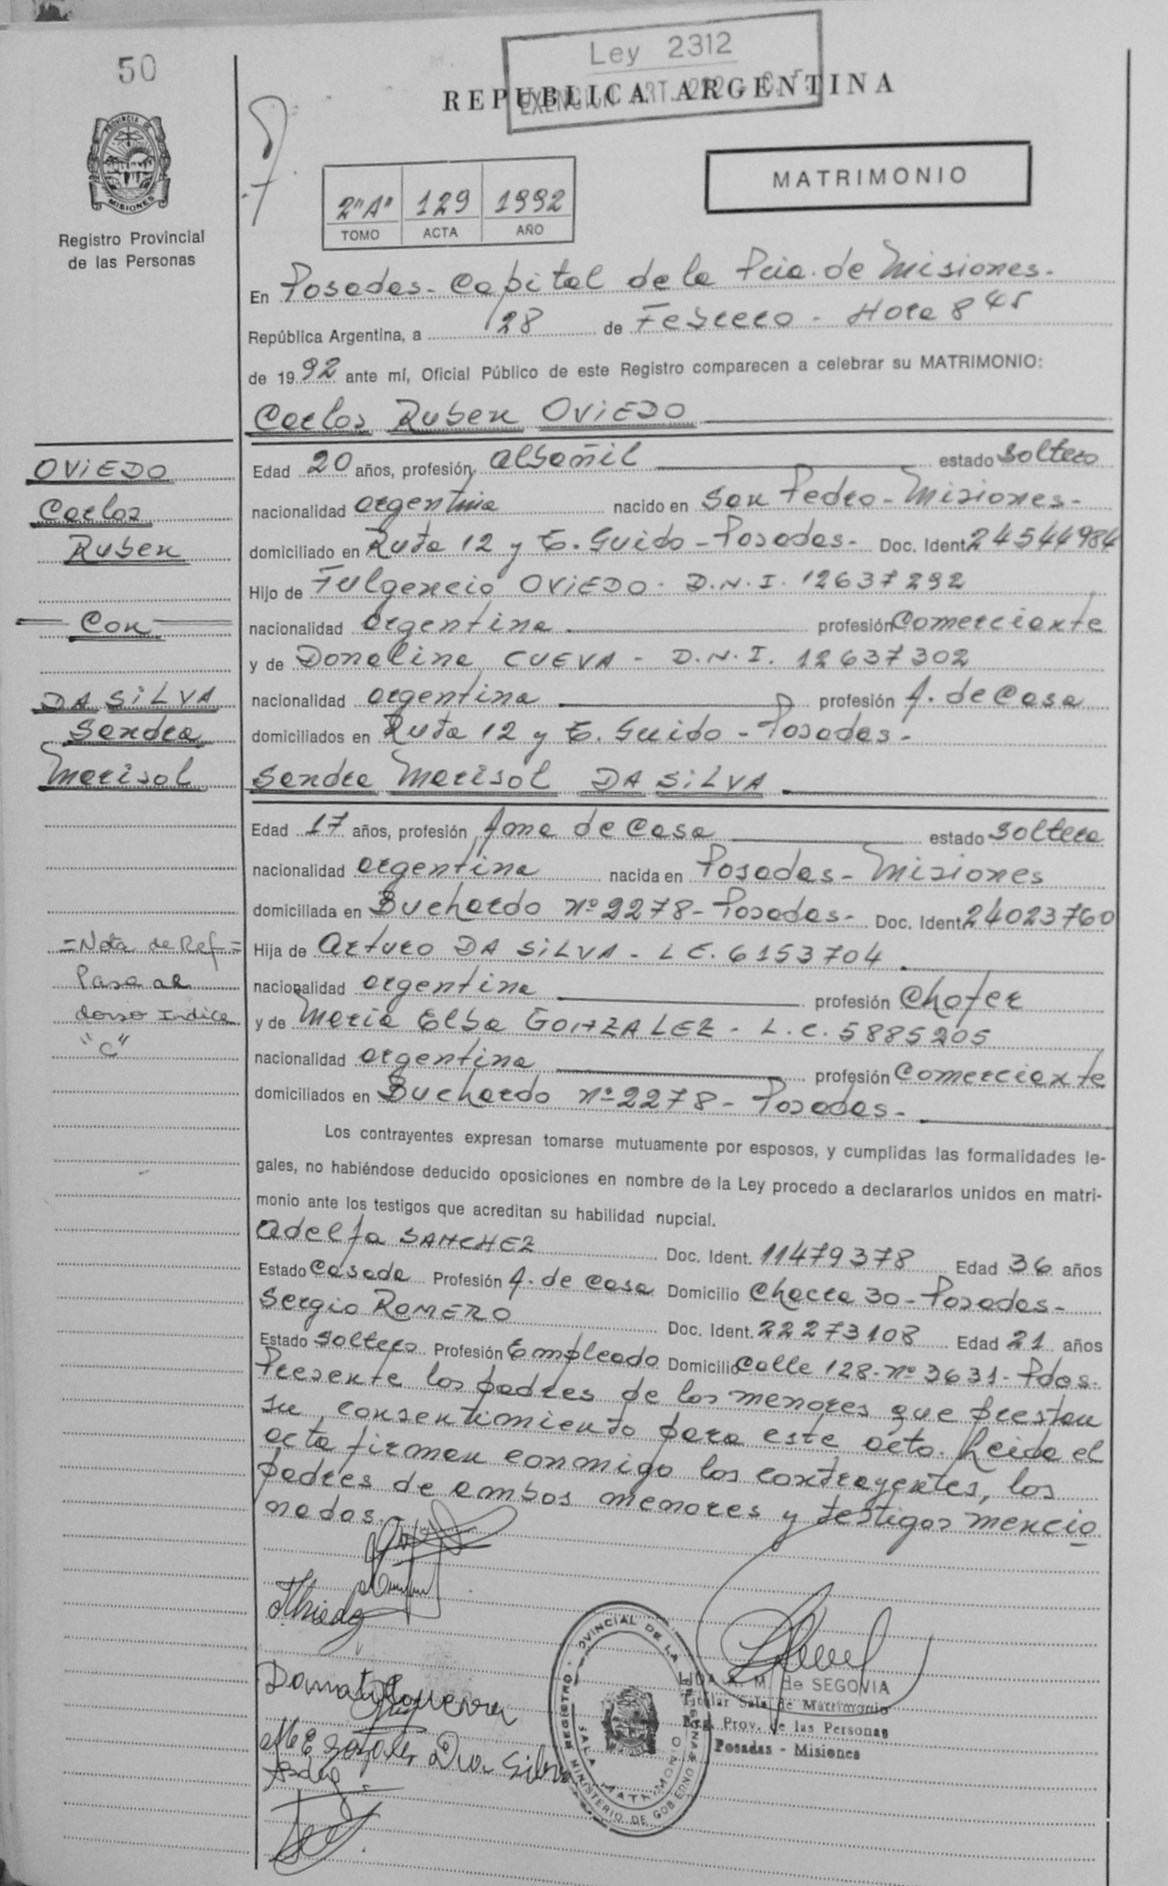 50
Ley 2312
REPUBLICA ARGENTINA
PROVINCIA DE
MISIONES
Registro Provincial
de las Personas
MATRIMONIO
2º"A" 129 1992
TOMO ACTA AÑO
En Posadas - Capital de la Pcia. de Misiones -
República Argentina, a 28 de Febrero - Hora 8 45
de 1992 ante mí, Oficial Público de este Registro comparecen a celebrar su MATRIMONIO:
Carlos Ruben OVIEDO
OVIEDO
Carlos
Ruben
Con
DA SILVA
Sandra
Marisol
Edad 20 años, profesión albañil estado soltero
nacionalidad argentina nacido en San Pedro - Misiones -
domiciliado en Ruta 12 y T. Guido - Posadas - Doc. Ident. 24544984
Hijo de Fulgencio OVIEDO - D.N.I. 12637292
nacionalidad argentina profesión Comerciante
y de Donalina CUEVA - D.N.I. 12637302
nacionalidad argentina profesión A. de Casa
domiciliados en Ruta 12 y T. Guido - Posadas -
Sandra Marisol DA SILVA
Edad 17 años, profesión Ama de Casa estado soltera
nacionalidad argentina nacida en Posadas - Misiones
domiciliada en Buchardo nº 2278 - Posadas - Doc. Ident. 24023760
Hija de Arturo DA SILVA - L E. 6153704
nacionalidad argentina profesión Chofer
y de Maria Elba GONZALEZ - L.C. 5885205
nacionalidad argentina profesión Comerciante
domiciliados en Buchardo nº 2278 - Posadas -
= Nota de Ref =
Pasa al
dorso Indice
"C"
Los contrayentes expresan tomarse mutuamente por esposos, y cumplidas las formalidades le-
gales, no habiéndose deducido oposiciones en nombre de la Ley procedo a declararlos unidos en matri-
monio ante los testigos que acreditan su habilidad nupcial.
Adelfa SANCHEZ Doc. Ident. 11479378 Edad 36 años
Estado Casada Profesión A. de Casa Domicilio Chacra 30 - Posadas -
Sergio ROMERO Doc. Ident. 22273108 Edad 21 años
Estado soltero Profesión Empleado Domicilio Calle 128 - nº 3631 - Pdas -
Presente los padres de los menores que prestan
su consentimiento para este acto. Leida el
acta firman conmigo los contrayentes, los
padres de ambos menores y testigos mencio
nados.
M E Gonzalez Da Silva
M. de SEGOVIA
Titular Sala de Matrimonio
Reg. Prov. de las Personas
Posadas - Misiones
REGISTRO PROVINCIAL DE LA PERSONAS
SALA MATRIMONIO
MINISTERIO DE GOBIERNO